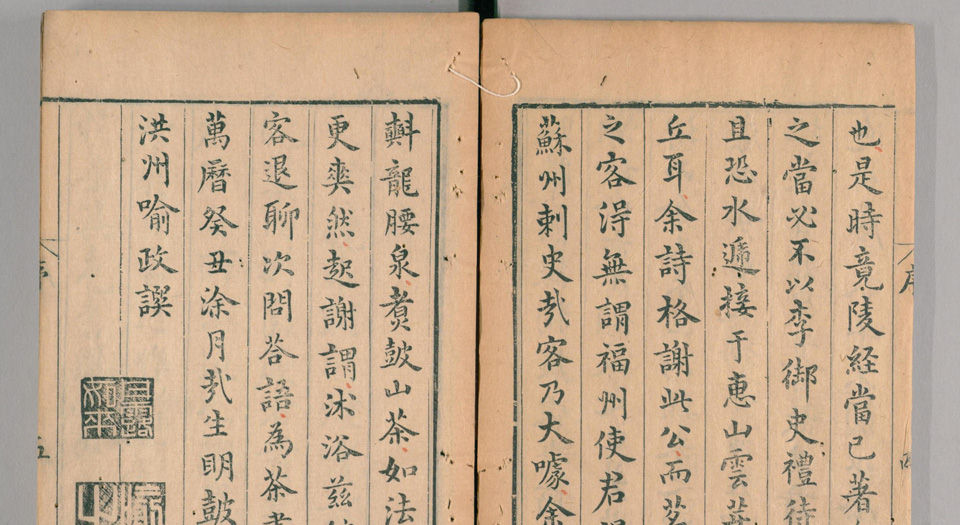 也是時竟陵経當已著
之當必不以李御史禮待
且恐水遞接于惠山雲
丘耳余詩格謝此公而茗
之客淂無謂福州使君
蘇州刺史㢤客乃大噱余
㪺龍腰泉煮鼓山茶如法
更爽然起謝謂沭浴茲
客退聊次問荅語為茶
萬曆癸丑涂月㢤生明鼓
洪州喻政譔
序
序
五